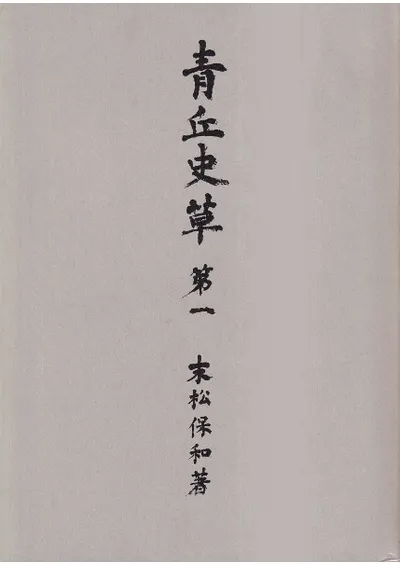 青丘史草 第一 末松保和著